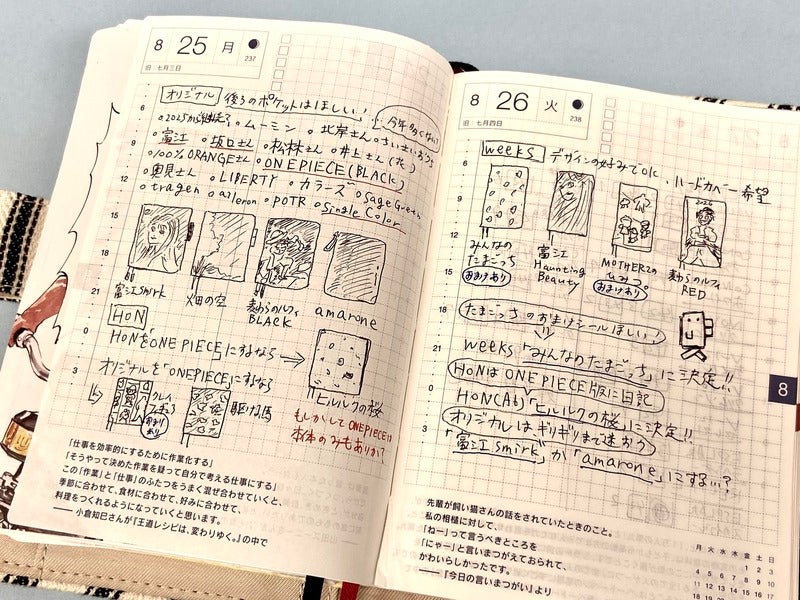 8 25 月
237
旧:七月三日
オリジナル 後ろのポケットはほしい!
今年多くない?
○ムーミン ○北岸さん ○ちいさいおうち
○富江 ○坂口さん ○松林さん ○井上さん(花)
○100%ORANGEさん ○ONE PIECE(BLACK)
○奥見さん ○LIBERTY ○カラーズ ○Sage Green
○tragen ○azlemon ○POTR ○Single Color
富江 smirk
畑の空
麦わらのルフィ
BLACK
amarone
HON
HONを「ONE PIECE」にするなら→
オリジナルを「ONEPIECE」にするなら
おまけあり
駆ける馬
ヒルルクの桜
もしかしてONEPIECEは
本体のみもありか?
「仕事を効率的にするために作業化する」
「そうやって決めた作業を疑って自分で考える仕事にする」
この「作業」と「仕事」のふたつをうまく混ぜ合わせていくと、
季節に合わせて、食材に合わせて、好みに合わせて、
料理をつくれるようになっていくと思います。
――小倉知巳さんが『王道レシピは、変わりゆく。』の中で
6
9
12
15
18
21
0
3
8 26 火
238
旧:七月四日
weeks デザインの好みでOK、ハードカバー希望
みんなの
たまごっち
おまけあり
富江
Haunting
Beauty
MOTHER2の
ひみつ。
おまけあり
2026
麦わらのルフィ
RED
たまごっちのおまけシールほしい!
weeks「みんなのたまごっち」に決定!!
HONはONE PIECE版に日記
HON(A6)「ヒルルクの桜」に決定!!
オリジナルはギリギリまで迷おう
「富江 smirk」か「amarone」にする…?
6
9
12
15
18
21
0
3
8
先輩が飼い猫さんの話をされていたときのこと。
私の相槌に対して、
「ねー」って言うべきところを
「にゃー」と言いまつがえておられて、
かわいらしかったです。
――『今日の言いまつがい』より
月 火 水 木 金 土 日
1 2 3
4 5 6 7 8 9 10
11 12 13 14 15 16 17
18 19